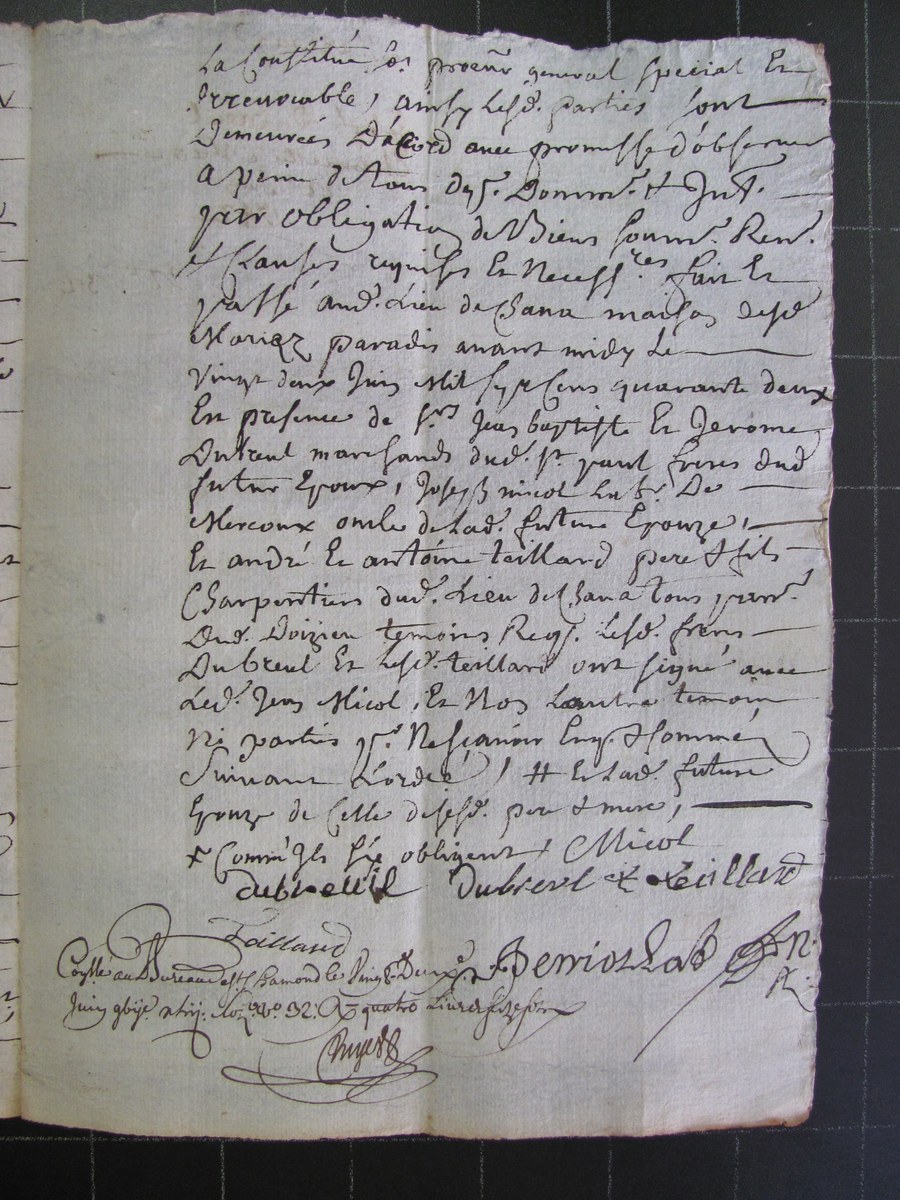 La Constitué so.r procur general special Et
Irrevocable, ainsy Lesd. parties sont
Demeurées D'acord avec promesse d'observer
A peine de tous dep.s Domm.s & Int.s
par obligation de Biens soum.s Ren.s
& Clauses requises Et Necess.res fait Et
passé aud. Lieu de Chana maison desd
Mariez paradis avant midy Le
Vingt deux Juin Mil sept Cens quarante deux
En presence de s.rs Jean baptiste Et Jerome
Dubreul marchands dud. st. paul freres dud
futur Epoux, Joseph micol Lab.r De
Mercoux oncle de Lad. future Epouze,
Et andré Et antoine teillard pere & fils
Charpentiers dud. Lieu de Chana tous parr.
Dud. Doizieu temoins Req.s Lesd. freres
Dubreul Et Lesd. teillard ont signé avec
Led. Jean Micol, Et Non Lautre temoin
Ni parties p.r Nescavoir Enq. & sommé
Suivant L'ordce, # Et Lad. future
Epouze de Celle desesd. pere & mere,
x Comm'Ils s'y obligent, Micol
dubreuil Dubreul teillard
Taillard
Con.llé au Bureau de St Chamond le Vingt Deux
Juin quatre Livres